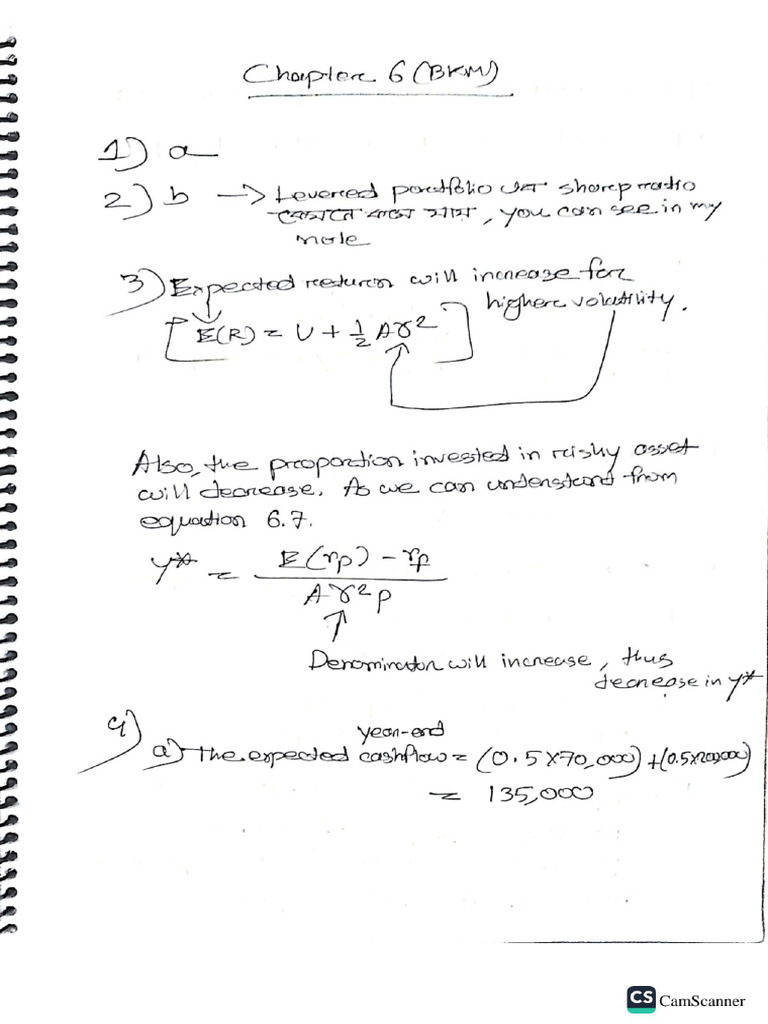 Chapter 6 (BKM)
1) a
2) b → Levered portfolio এর sharp ratio
কেমনে বের করে, you can see in my
note
3) Expected return will increase for
higher volatility.
[E(R) = U + 1/2 Aσ²]
Also, the proportion invested in risky asset
will decrease. As we can understand from
equation 6.7.
y* = (E(rp) - rf) / (Aσ²p)
Denominator will increase, thus
decrease in y*
4)
a) The expected year-end cashflow = (0.5×70,000) + (0.5×200,000)
= 135,000
CS CamScanner